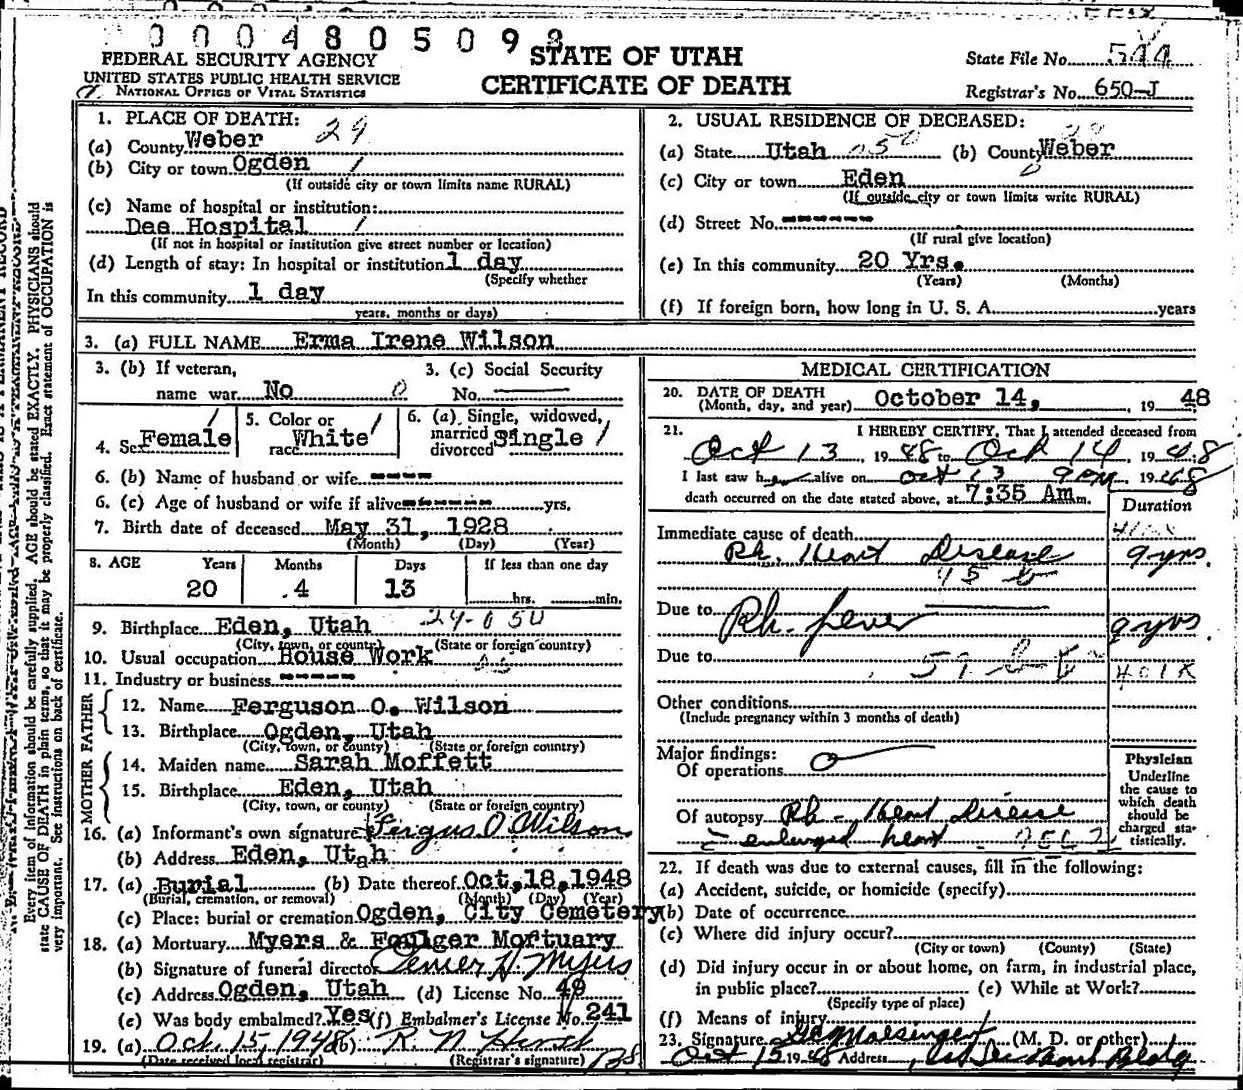 0 0 0 4 8 0 5 0 9 8
FEDERAL SECURITY AGENCY
UNITED STATES PUBLIC HEALTH SERVICE
NATIONAL OFFICE OF VITAL STATISTICS
STATE OF UTAH
CERTIFICATE OF DEATH
State File No. 544
Registrar's No. 650-J
1. PLACE OF DEATH:
(a) County Weber 29
(b) City or town Ogden
(If outside city or town limits name RURAL)
(c) Name of hospital or institution:
Dee Hospital
(If not in hospital or institution give street number or location)
(d) Length of stay: In hospital or institution 1 day
(Specify whether
In this community 1 day
years, months or days)
2. USUAL RESIDENCE OF DECEASED:
(a) State Utah (b) County Weber
(c) City or town Eden
(If outside city or town limits write RURAL)
(d) Street No. ------
(If rural give location)
(e) In this community 20 Yrs.
(Years) (Months)
(f) If foreign born, how long in U. S. A. years
3. (a) FULL NAME Erma Irene Wilson
3. (b) If veteran,
name war No 0
3. (c) Social Security
No.
4. Sex Female
5. Color or
race White
6. (a) Single, widowed,
married
divorced Single
6. (b) Name of husband or wife ----
6. (c) Age of husband or wife if alive ------ yrs.
7. Birth date of deceased May 31, 1928
(Month) (Day) (Year)
8. AGE Years Months Days If less than one day
20 4 13 hrs. min.
9. Birthplace Eden, Utah
(City, town, or county) (State or foreign country)
10. Usual occupation House Work
11. Industry or business -----
FATHER
12. Name Ferguson O. Wilson
13. Birthplace Ogden, Utah
(City, town, or county) (State or foreign country)
MOTHER
14. Maiden name Sarah Moffett
15. Birthplace Eden, Utah
(City, town, or county) (State or foreign country)
16. (a) Informant's own signature Fergus O. Wilson
(b) Address Eden, Utah
17. (a) Burial (b) Date thereof Oct, 18, 1948
(Burial, cremation, or removal) (Month) (Day) (Year)
(c) Place: burial or cremation Ogden, City Cemetery
18. (a) Mortuary Myers & Foulger Mortuary
(b) Signature of funeral director H. Myers
(c) Address Ogden, Utah (d) License No. 49
(e) Was body embalmed? Yes (f) Embalmer's License No. 241
19. (a) Oct. 15, 1948 (b) R. N. Hirst
(Date received local registrar) (Registrar's signature)
MEDICAL CERTIFICATION
20. DATE OF DEATH
(Month, day, and year) October 14, 19 48
21. I HEREBY CERTIFY, That I attended deceased from
Oct 13, 19 48 to Oct 14, 19 48
I last saw her alive on Oct 13 9 pm 1948
death occurred on the date stated above, at 7:35 Am m.
Duration
Immediate cause of death
Rh. Heart Disease 9 yrs.
Due to Rh. fever 9 yrs
Due to
Other conditions
(Include pregnancy within 3 months of death)
Major findings:
Of operations 0
Of autopsy Rh - Heart Disease
enlarged heart
Physician
Underline
the cause to
which death
should be
charged sta-
tistically.
22. If death was due to external causes, fill in the following:
(a) Accident, suicide, or homicide (specify)
(b) Date of occurrence
(c) Where did injury occur?
(City or town) (County) (State)
(d) Did injury occur in or about home, on farm, in industrial place,
in public place? (e) While at Work?
(Specify type of place)
(f) Means of injury
23. Signature (M. D. or other)
Oct 15 1948 Address Bldg
Every item of information should be carefully supplied. AGE should be stated EXACTLY. PHYSICIANS should
state CAUSE OF DEATH in plain terms, so that it may be properly classified. Exact statement of OCCUPATION is
very important. See instructions on back of certificate.